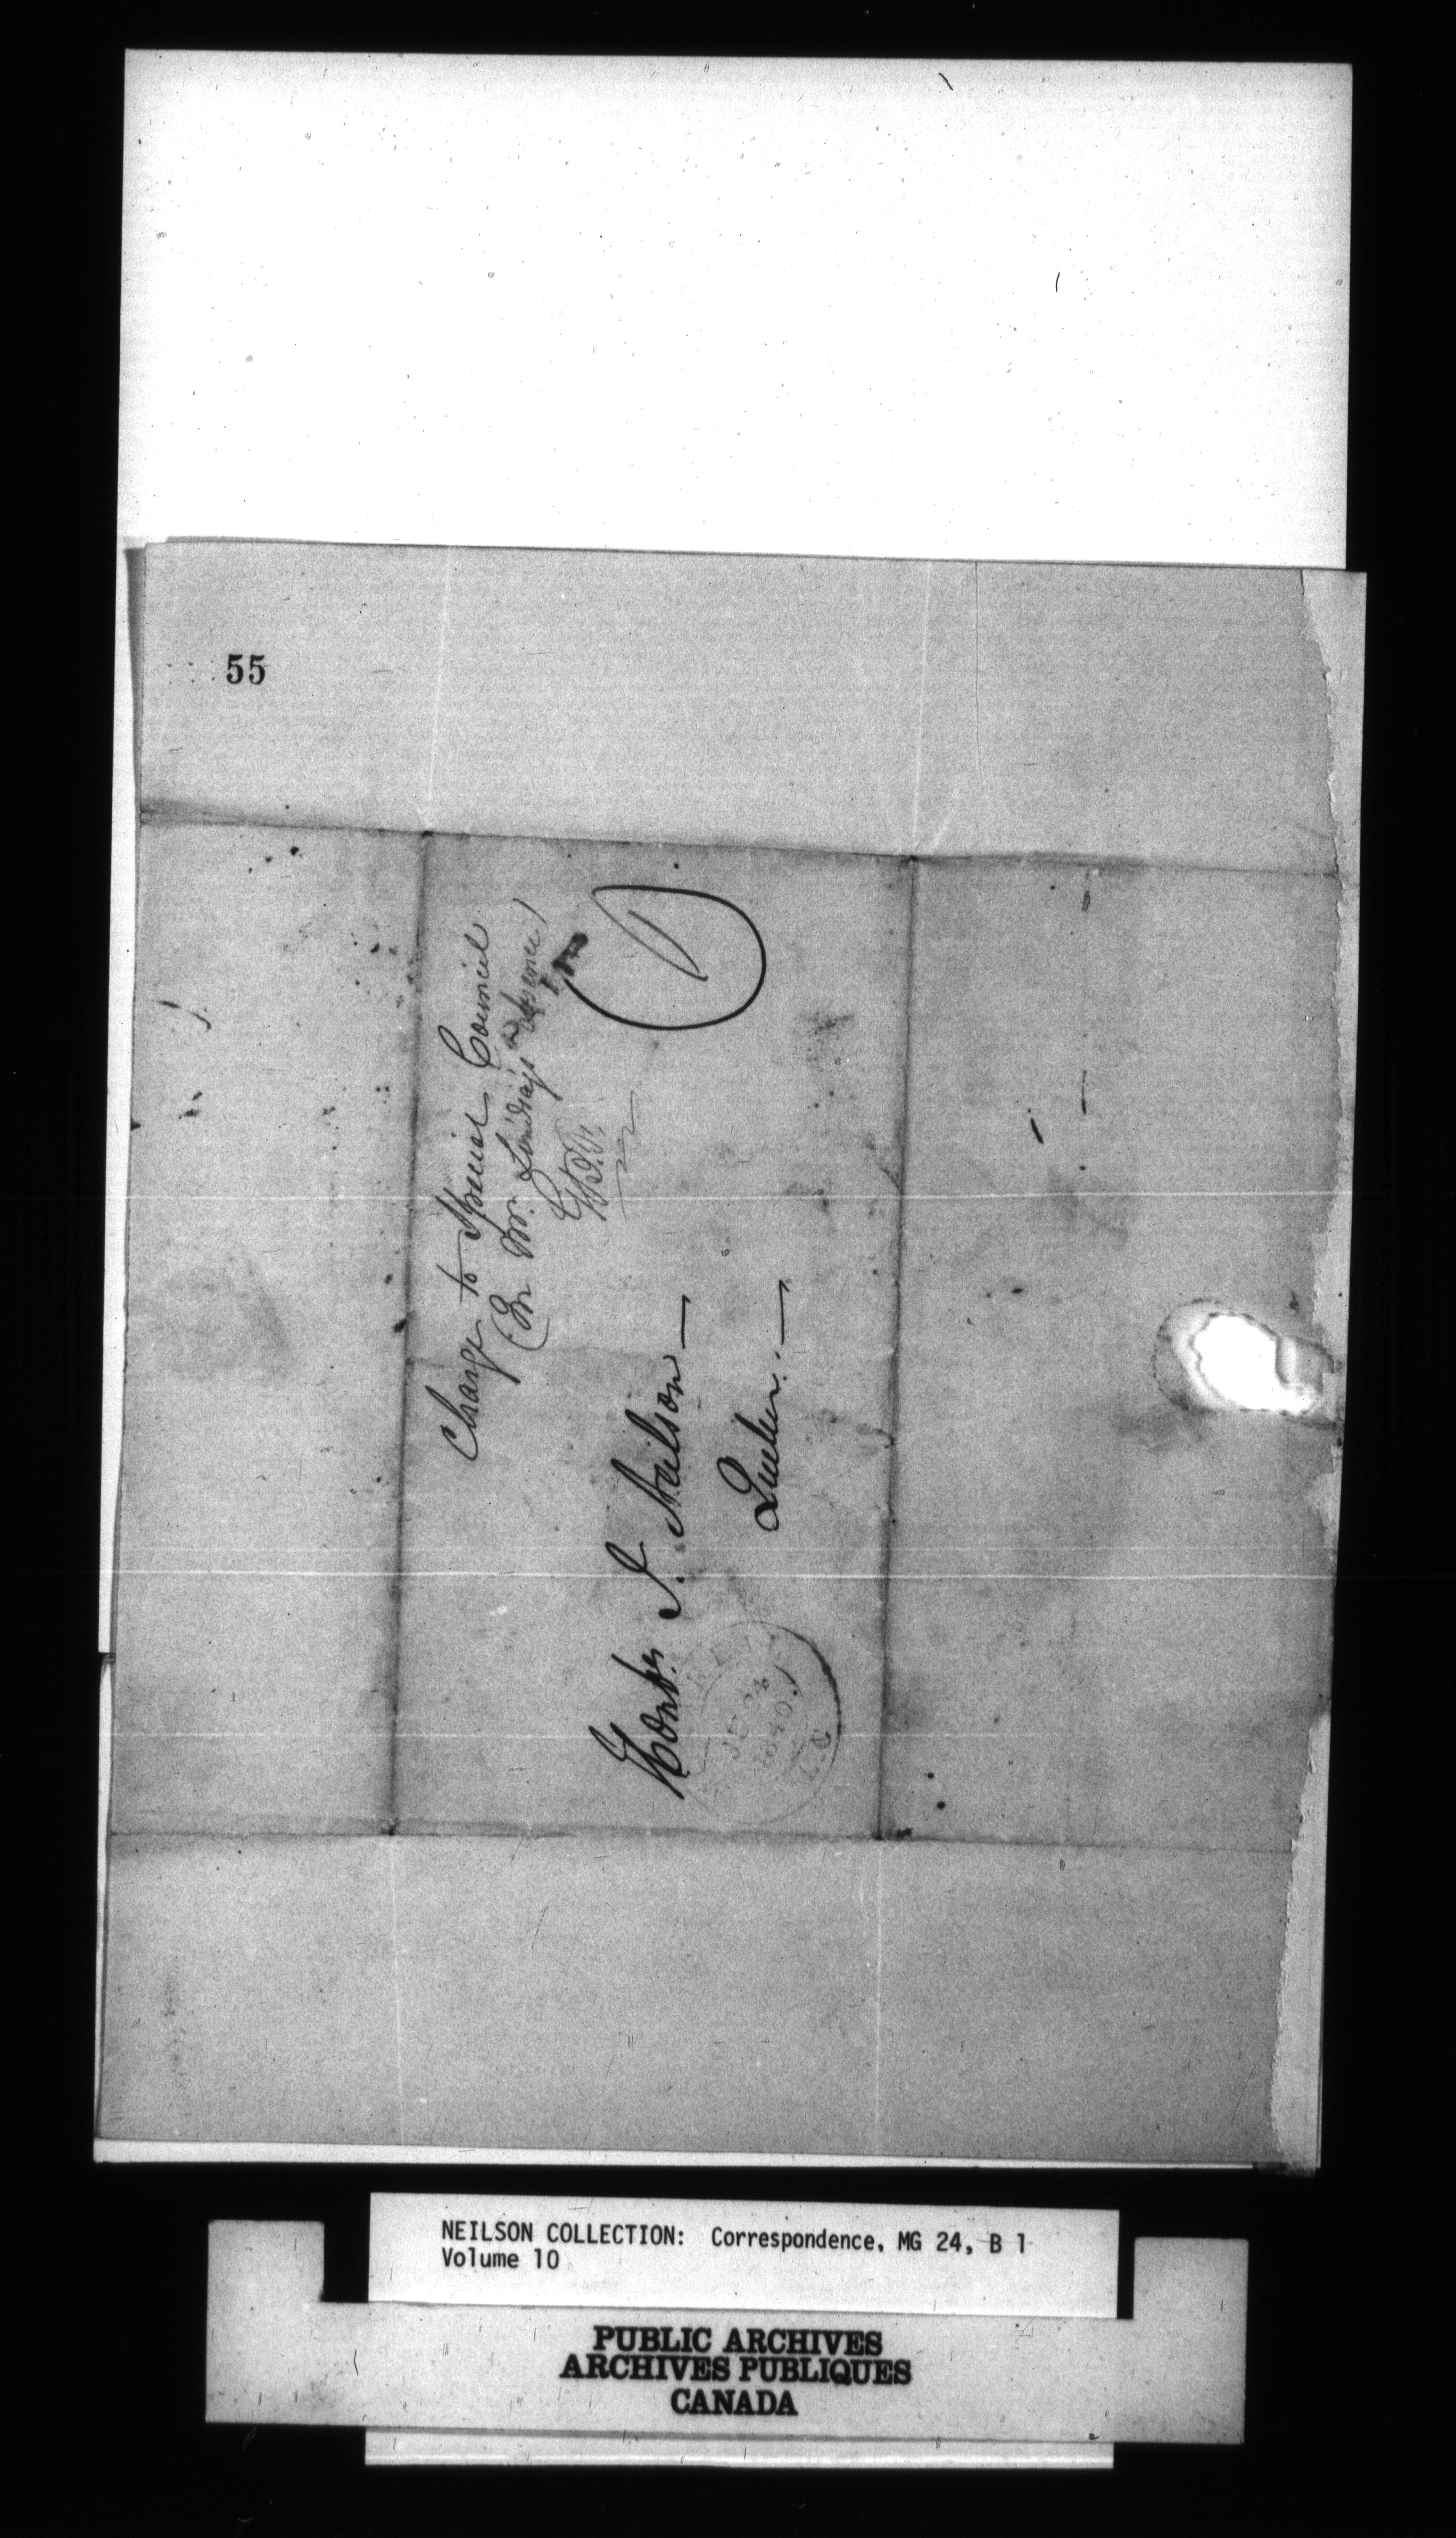 55
Charge to Special Council
(In Mr. Lindsay's absence)
Honble J. Neilson —
Quebec. —
1840
L.C
NEILSON COLLECTION: Correspondence, MG 24, B 1
Volume 10
PUBLIC ARCHIVES
ARCHIVES PUBLIQUES
CANADA